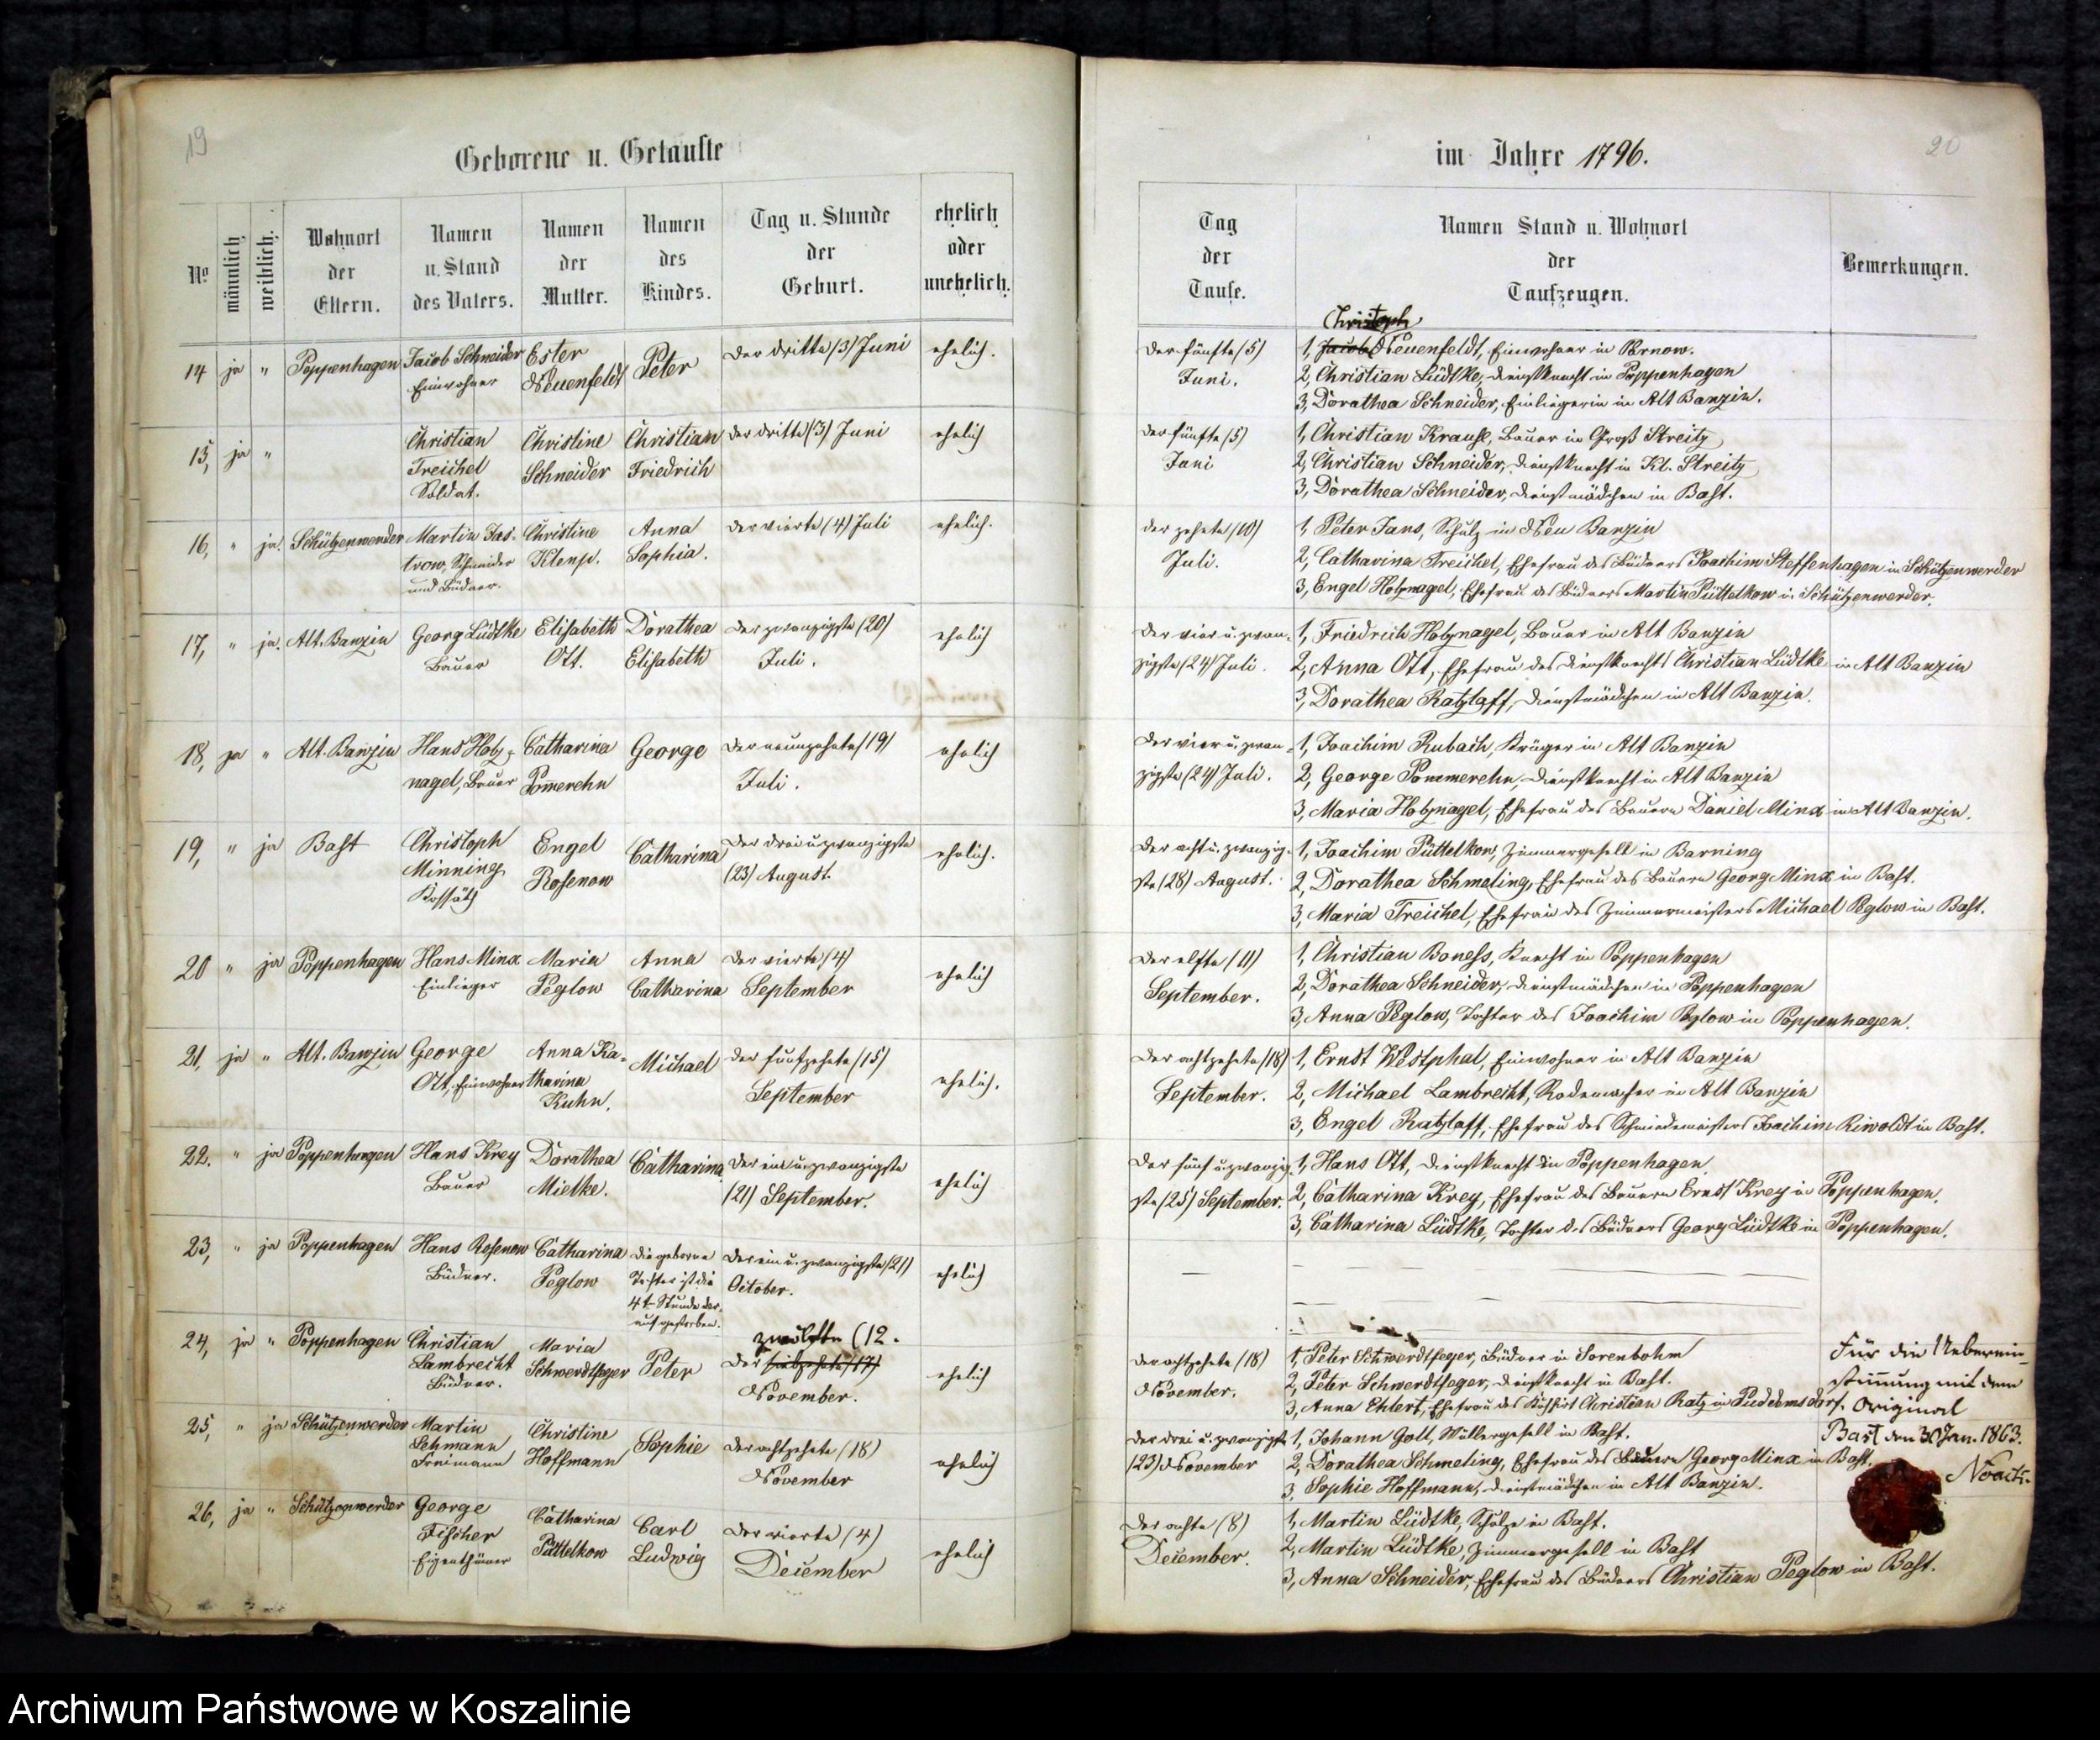 19
Geborene u. Getaufte
No
männlich
weiblich.
Wohnort
der
Eltern.
Namen
u. Stand
des Vaters.
Namen
der
Mutter.
Namen
des
Kindes.
Tag u. Stunde
der
Geburt.
ehelich
oder
unehelich.
14 ja " Poppenhagen Jacob Schneider Ester Peter der dritte (3) Juni ehelich.
Einwohner Neuenfeldt
15, ja " Christian Christine Christian der dritte (3) Juni ehelich
Treichel Schneider Friedrich
Soldat.
16, " ja. Schützenwerder Martin Jas- Christine Anna der vierte (4) Juli ehelich.
trow, Schneider Klemp. Sophia.
und Büdner.
17, " ja. Alt. Banzin Georg Lüdtke Elisabeth Dorathea der zwanzigste (20) ehelich
Bauer Ott. Elisabeth Juli.
18, ja " Alt. Banzin Hans Holz- Catharina George der neunzehnte (19) ehelich
nagel, Bauer Pomerehn Juli.
19, " ja Bast Christoph Engel Catharina der drei u. zwanzigste ehelich.
Minning Rosenow (23) August.
Kossäth
20 " ja Poppenhagen Hans Minx Maria Anna der vierte (4) ehelich
Einlieger Peglow Catharina September
21, ja " Alt. Banzin George Anna Ka- Michael der funfzehnte (15) ehelich.
Ott, Einwohner tharina September
Kuhn.
22. " ja Poppenhagen Hans Krey Dorathea Catharina der ein u. zwanzigste ehelich
Bauer Mielke. (21) September.
23, " ja Poppenhagen Hans Rosenow Catharina die geborne der ein u. zwanzigste (21) ehelich
Büdner. Peglow Tochter ist die October.
4te Stunde dar-
auf gestorben.
zwölfte (12.
24, ja " Poppenhagen Christian Maria Peter der siebzehnte (17) ehelich
Lambrecht Schwerdtfeger November.
Büdner.
25, " ja Schützenwerder Martin Christine Sophie der achtzehnte (18) ehelich
Lehmann Hoffmann November
Freimann
26, ja " Schützenwerder George Catharina Carl der vierte (4) ehelich
Fischer Püttelkow Ludwig December
Eigenthümer
20
im Jahre 1796.
Tag
der
Taufe.
Namen Stand u. Wohnort
der
Taufzeugen.
Bemerkungen.
Christoph
der fünfte (5) 1, Jacob Neuenfeldt, Einwohner in Parnow.
Juni. 2, Christian Lüdtke, Dienstknecht in Poppenhagen
3, Dorathea Schneider, Einliegerin in Alt Banzin.
der fünfte (5) 1, Christian Krause, Bauer in Groß Streitz
Juni 2, Christian Schneider, Dienstknecht in Kl. Streitz
3, Dorathea Schneider, Dienstmädchen in Bast.
der zehnte (10) 1, Peter Jans, Schulz in Neu Banzin
Juli. 2, Catharina Treichel, Ehefrau des Büdners Joachim Steffenhagen in Schützenwerder
3, Engel Holznagel, Ehefrau des Büdners Martin Püttelkow in Schützenwerder.
der vier u. zwan- 1, Friedrich Holznagel, Bauer in Alt Banzin
zigste (24) Juli. 2, Anna Ott, Ehefrau des Dienstknechts Christian Lüdtke in Alt Banzin
3, Dorathea Ratzlaff, Dienstmädchen in Alt Banzin.
der vier u. zwan- 1, Joachim Rubach, Krüger in Alt Banzin
zigste (24) Juli. 2, George Pommerehn, Dienstknecht in Alt Banzin
3, Maria Holznagel, Ehefrau des Bauern Daniel Minx in Alt Banzin.
der acht u. zwanzig- 1, Joachim Püttelkow, Zimmergesell in Barning
ste (28) August. 2, Dorathea Schmeling, Ehefrau des Bauern Georg Minx in Bast.
3, Maria Treichel, Ehefrau des Zimmermeisters Michael Peglow in Bast.
der elfte (11) 1, Christian Boness, Knecht in Poppenhagen
September. 2, Dorathea Schneider, Dienstmädchen in Poppenhagen
3, Anna Peglow, Tochter des Joachim Peglow in Poppenhagen.
der achtzehnte (18) 1, Ernst Westphal, Einwohner in Alt Banzin
September. 2, Michael Lambrecht, Rademacher in Alt Banzin
3, Engel Ratzlaff, Ehefrau des Schmiedemeisters Joachim Riwoldt in Bast.
der fünf u. zwanzig- 1, Hans Ott, Dienstknecht in Poppenhagen
ste (25) September. 2, Catharina Krey, Ehefrau des Bauern Ernst Krey in Poppenhagen.
3, Catharina Lüdtke, Tochter des Büdners Georg Lüdtke in Poppenhagen.
der achtzehnte (18) 1, Peter Schwerdtfeger, Büdner in Sorenbohm
November. 2, Peter Schwerdtfeger, Dienstknecht in Bast.
3, Anna Ehlert, Ehefrau des Christian Ratz in Puddemsdorf.
der drei u. zwanzigste 1, Johann Goll, Müllergesell in Bast.
(23) November 2, Dorathea Schmeling, Ehefrau des Bauern Georg Minx in Bast.
3, Sophie Hoffmann, Dienstmädchen in Alt Banzin.
der achte (8) 1, Martin Lüdtke, Schulze in Bast.
December. 2, Martin Lüdtke, Zimmergesell in Bast
3, Anna Schneider, Ehefrau des Büdners Christian Peglow in Bast.
Für die Ueberein-
stimmung mit dem
Original
Bast den 30 Jan. 1863.
Archiwum Państwowe w Koszalinie